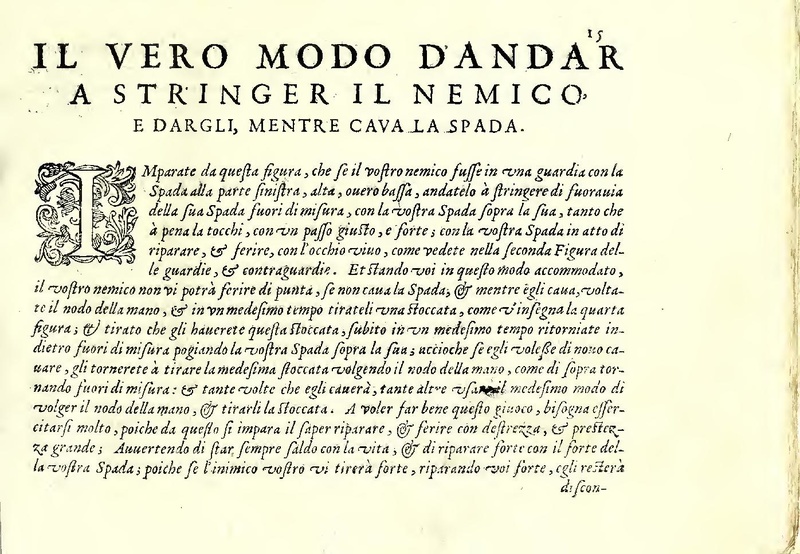 15
IL VERO MODO D'ANDAR
A STRINGER IL NEMICO,
E DARGLI, MENTRE CAVA LA SPADA.
IMparate da questa figura, che se il vostro nemico fusse in vna guardia con la
Spada alla parte sinistra, alta, ouero bassa, andatelo à stringere di fuorauia
della sua Spada fuori di misura, con la vostra Spada sopra la sua, tanto che
à pena la tocchi, con vn passo giusto, e forte; con la vostra Spada in atto di
riparare, & ferire, con l'occhio viuo, come vedete nella seconda Figura del-
le guardie, & contraguardie. Et stando voi in questo modo accommodato,
il vostro nemico non vi potrà ferire di punta, se non caua la Spada; & mentre egli caua, volta-
te il nodo della mano, & in vn medesimo tempo tirateli vna stoccata, come v'insegna la quarta
figura; & tirato che gli hauerete questa stoccata, subito in vn medesimo tempo ritorniate in-
dietro fuori di misura pogiando la vostra Spada sopra la sua; accioche se egli volesse di nouo ca-
uare, gli tornerete à tirare la medesima stoccata volgendo il nodo della mano, come di sopra tor-
nando fuori di misura: & tante volte che egli cauerà, tante altre il medesimo modo di
volger il nodo della mano, & tirarli la stoccata. A voler far bene questo giuoco, bisogna esser-
citarsi molto, poiche da questo si impara il saper riparare, & ferire con destrezza, & prestez-
za grande; Auuertendo di star sempre saldo con la vita, & di riparare forte con il forte del-
la vostra Spada; poiche se l'inimico vostro vi tirerà forte, riparando voi forte, egli resterà
discon-